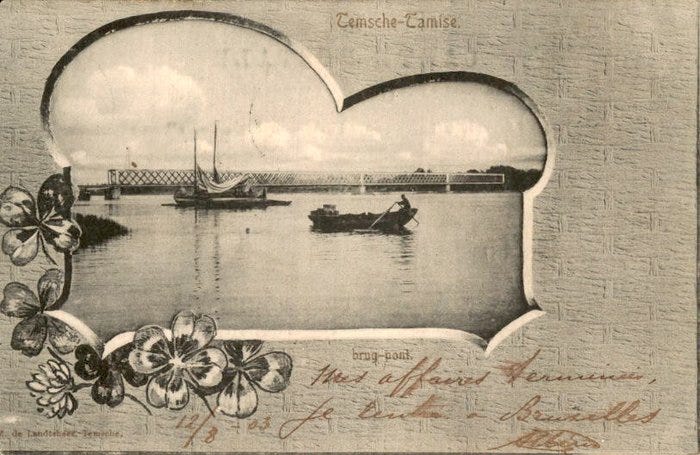 Temsche-Tamise.
brug-pont.
Mes affaires terminées,
12/8 - 03 Je rentre à Bruxelles
de Landtsheer-Temsche.